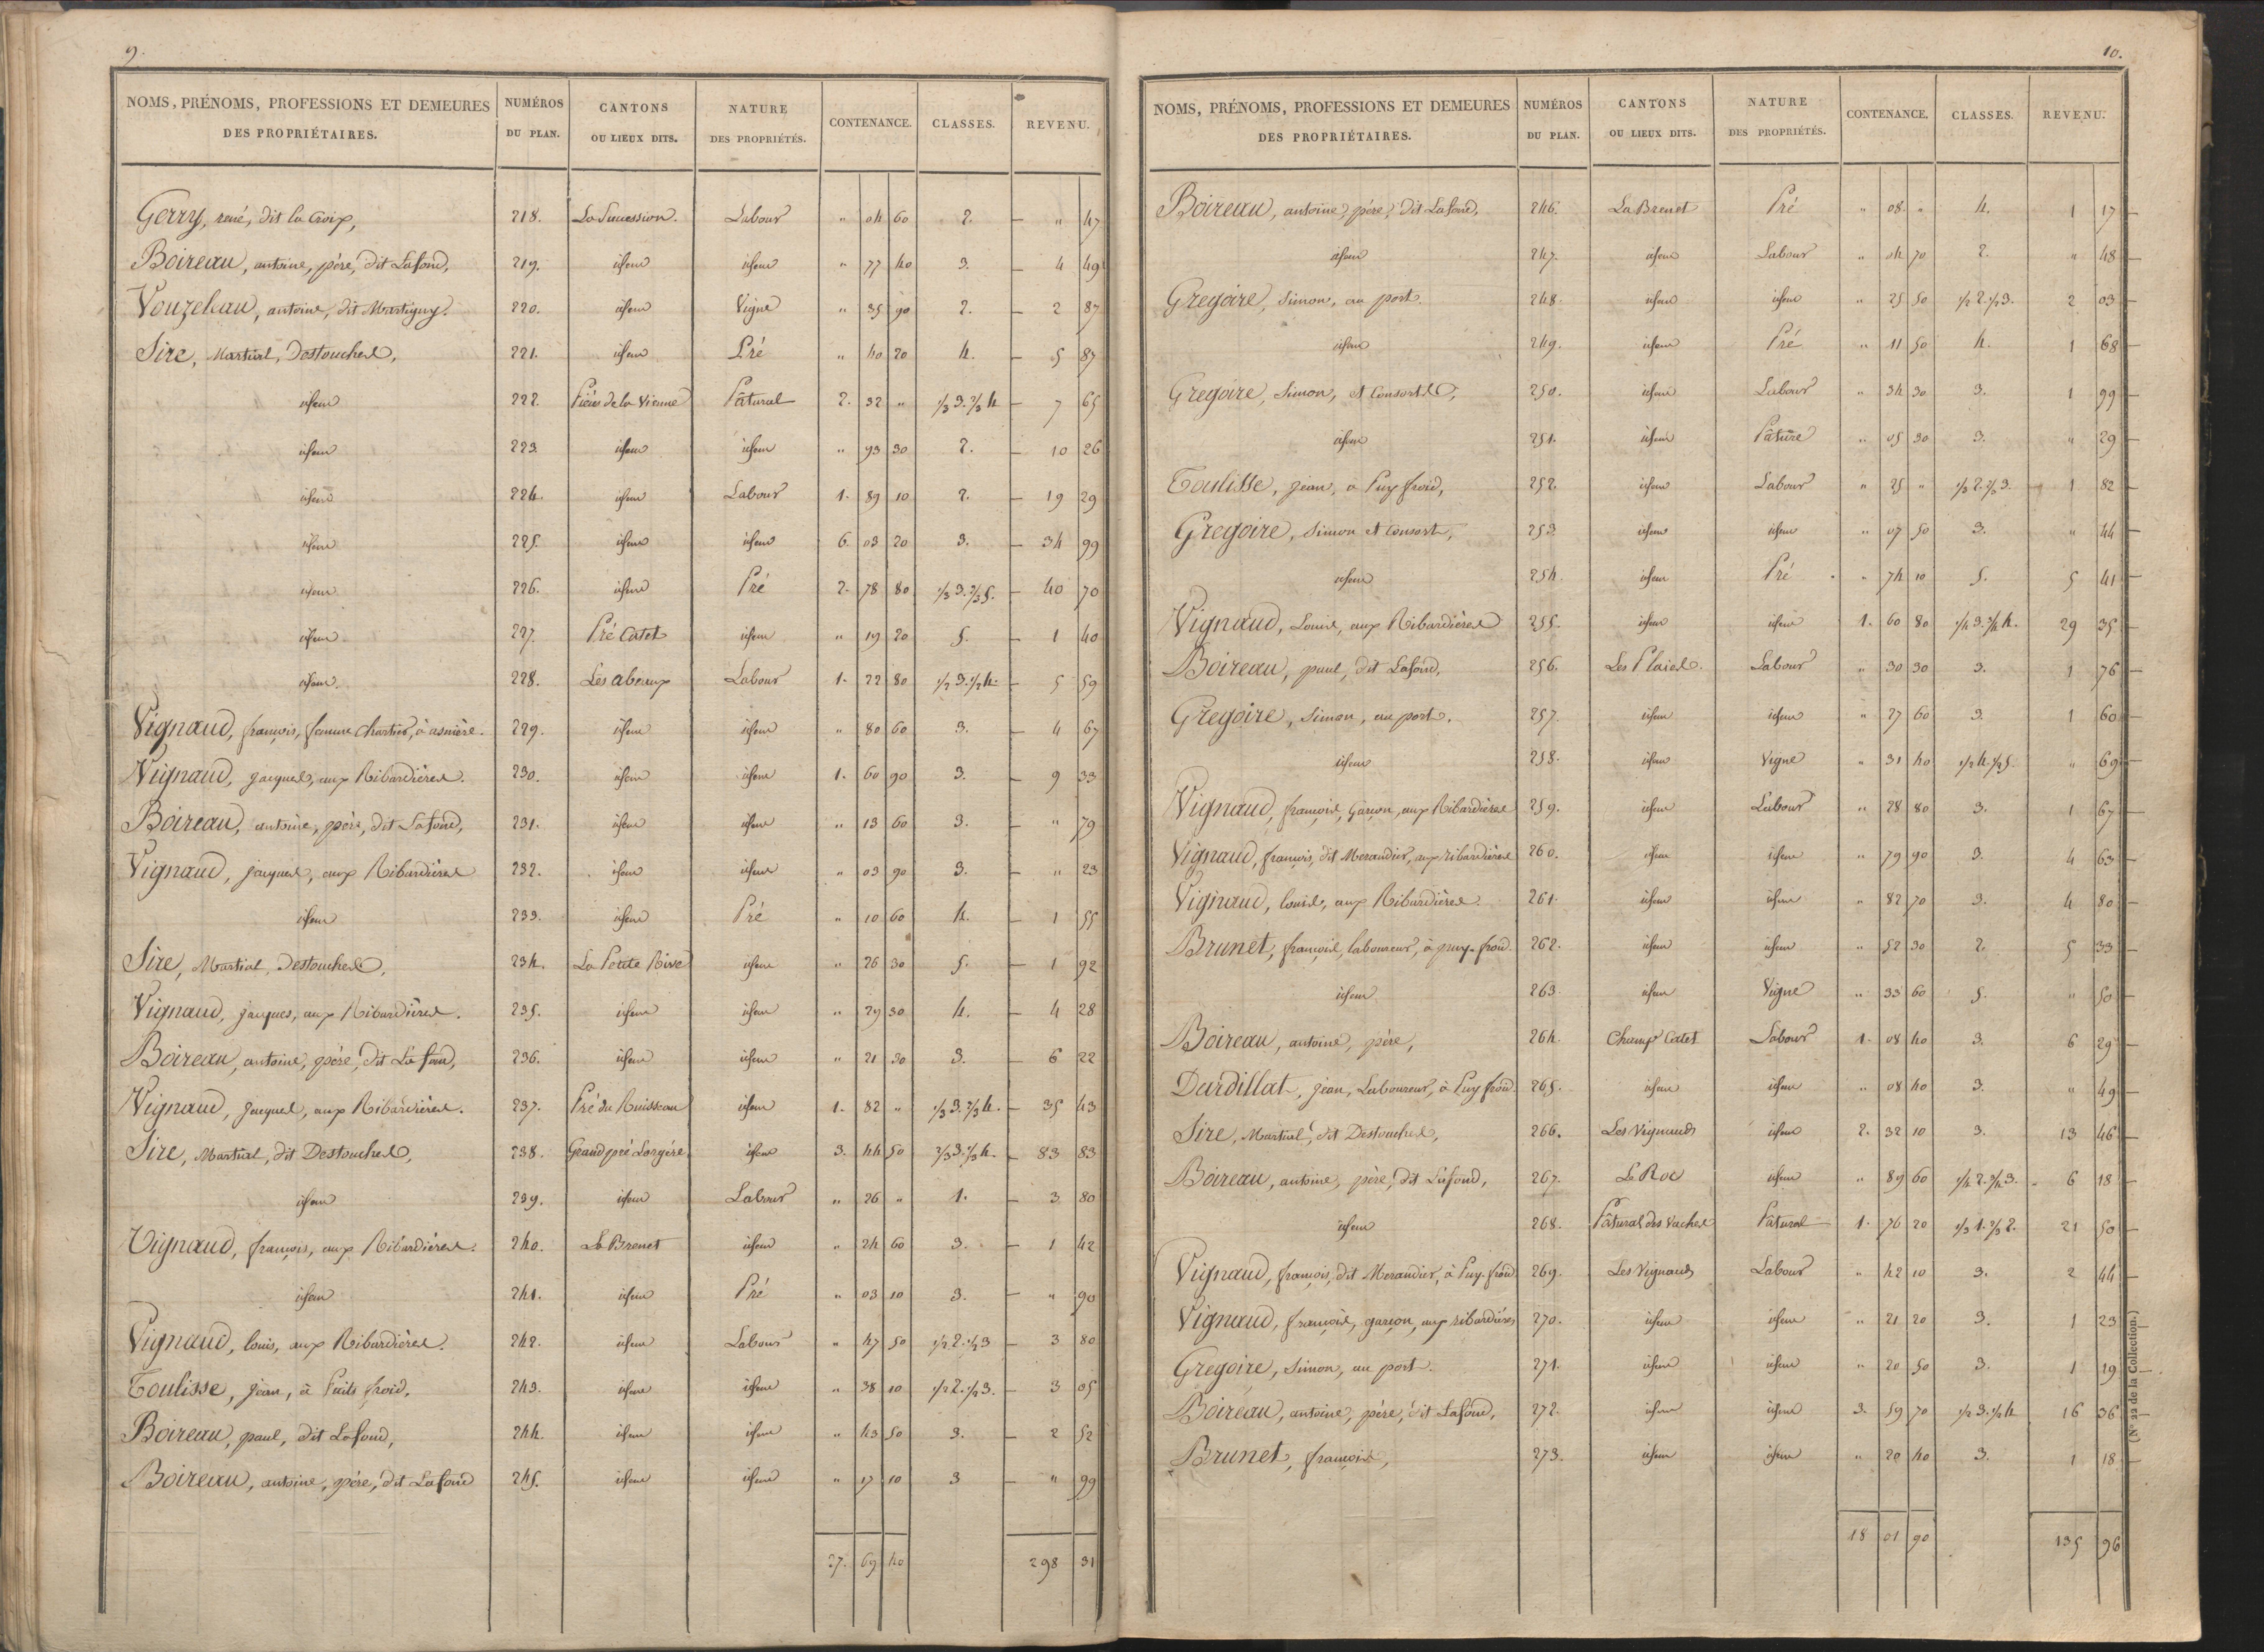 9.
NOMS, PRÉNOMS, PROFESSIONS ET DEMEURES DES PROPRIÉTAIRES. NUMÉROS DU PLAN. CANTONS OU LIEUX DITS. NATURE DES PROPRIÉTÉS. CONTENANCE. CLASSES. REVENU.
Gerry, rené, dit la Croix, 218. La Succession. Labour " 04 60 2. — " 47
Boireau, antoine, père, dit Lafond, 219. idem idem " 77 40 3. — 4 49
Vouzelleau, antoine, dit Martigny. 220. idem Vigne " 35 90 2. — 2 87
Sire, Martial, Destouches, 221. idem Pré " 40 20 4. — 5 87
idem 222. Pièces de la Vienne Pâtural 2. 32 " 1/3 3. 2/3 4 — 7 65
idem 223. idem idem " 93 30 2. — 10 26
idem 224. idem Labour 1. 89 10 2. — 19 29
idem 225. idem idem 6. 03 20 3. — 34 99
idem 226. idem Pré 2. 78 80 1/3 3. 2/3 5. — 40 70
idem 227. Pré Catet idem " 19 20 5. — 1 40
idem 228. Les abeaux Labour 1. 22 80 1/2 3. 1/2 4. — 5 59
Vignaud, françois, femme Chartier, à asnière. 229. idem idem " 80 60 3. — 4 67
Vignaud, jacques, aux Ribardières. 230. idem idem 1. 60 90 3. — 9 33
Boireau, antoine, père, dit Lafond, 231. idem idem " 13 60 3. — " 79
Vignaud, jacques, aux Ribardières 232. idem idem " 03 90 3. — " 23
idem 233. idem Pré " 10 60 4. — 1 55
Sire, Martial, Destouches, 234. La Petite Rive idem " 26 30 5. — 1 92
Vignaud, jacques, aux Ribardières. 235. idem idem " 29 30 4. — 4 28
Boireau, antoine, père, dit La fond, 236. idem idem " 21 30 3. — 6 22
Vignaud, jacques, aux Ribardières. 237. Pré du Ruisseau idem 1. 82 " 1/3 3. 2/3 4. — 35 43
Sire, Martial, dit Destouches, 238. Grand pré Lorgère idem 3. 44 50 2/3 3. 1/3 4. — 83 83
idem 239. idem Labour " 26 " 1. — 3 80
Vignaud, françois, aux Ribardières. 240. La Brenet idem " 24 60 3. — 1 42
idem 241. idem Pré " 03 10 3. — " 90
Vignaud, louis, aux Ribardières. 242. idem Labour " 47 50 1/2 2. 1/2 3 — 3 80
Toulisse, jean, à Puits froid, 243. idem idem " 38 10 1/2 2. 1/2 3. — 3 05
Boireau, paul, dit Lafond, 244. idem idem " 43 50 3. — 2 52
Boireau, antoine, père, dit Lafond 245. idem idem " 17 10 3 — " 99
27. 69 40 298 31
10.
NOMS, PRÉNOMS, PROFESSIONS ET DEMEURES DES PROPRIÉTAIRES. NUMÉROS DU PLAN. CANTONS OU LIEUX DITS. NATURE DES PROPRIÉTÉS. CONTENANCE. CLASSES. REVENU.
Boireau, antoine, père, dit Lafond, 246. La Brenet Pré " 08 " 4. 1 17 —
idem 247. idem Labour " 04 70 2. " 48 —
Gregoire, Simon, au port. 248. idem idem " 25 50 1/2 2. 1/2 3. 2 03 —
idem 249. idem Pré " 11 50 4. 1 68 —
Gregoire, Simon, et Consorts, 250. idem Labour " 34 30 3. 1 99 —
idem 251. idem Pâture " 05 30 3. " 29 —
Toulisse, jean, à Puy froid, 252. idem Labour " 25 " 1/3 2. 2/3 3. 1 82 —
Gregoire, Simon et Consort, 253. idem idem " 07 50 3. " 44 —
idem 254. idem Pré " 74 10 5. 5 41 —
Vignaud, Louis, aux Ribardières 255. idem idem 1. 60 80 1/4 3. 3/4 4. 29 35 —
Boireau, paul, dit Lafond, 256. Les Plaids. Labour " 30 30 3. 1 76 —
Gregoire, Simon, au port. 257. idem idem " 27 60 3. 1 60 —
idem 258. idem Vigne " 31 40 1/2 4. 1/2 5. " 69 —
Vignaud, françois, Garçon, aux Ribardières 259. idem Labour " 28 80 3. 1 67 —
Vignaud, françois, dit Morandier, aux ribardières 260. idem idem " 79 90 3. 4 63 —
Vignaud, louis, aux Ribardières. 261. idem idem " 82 70 3. 4 80 —
Brunet, françois, laboureur, à puy-froid. 262. idem idem " 52 30 2. 5 33 —
idem 263. idem Vigne " 33 60 5. " 50 —
Boireau, antoine, père, 264. Champ Catet Labour 1. 08 40 3. 6 29 —
Dardillat, jean, Laboureur, à Puy froid. 265. idem idem " 08 40 3. " 49 —
Sire, Martial, dit Destouches, 266. Les Vignauds idem 2. 32 10 3. 13 46 —
Boireau, antoine, père, dit Lafond, 267. Le Roc idem " 89 60 1/4 2. 3/4 3. 6 18 —
idem 268. Pâtural des Vaches Pâtural 1. 76 20 1/3 1. 2/3 2. 21 50 —
Vignaud, françois, dit Morandier, à Puy-froid 269. Les Vignauds Labour " 42 10 3. 2 44 —
Vignaud, françois, garçon, aux ribardières 270. idem idem " 21 20 3. 1 23 —
Gregoire, Simon, au port. 271. idem idem " 20 50 3. 1 19 —
Boireau, antoine, père, dit Lafond, 272. idem idem 3. 59 70 1/2 3. 1/2 4 16 36 —
Brunet, françois, 273. idem idem " 20 40 3. 1 18 —
18 01 90 135 96
(N° 22 de la Collection.)